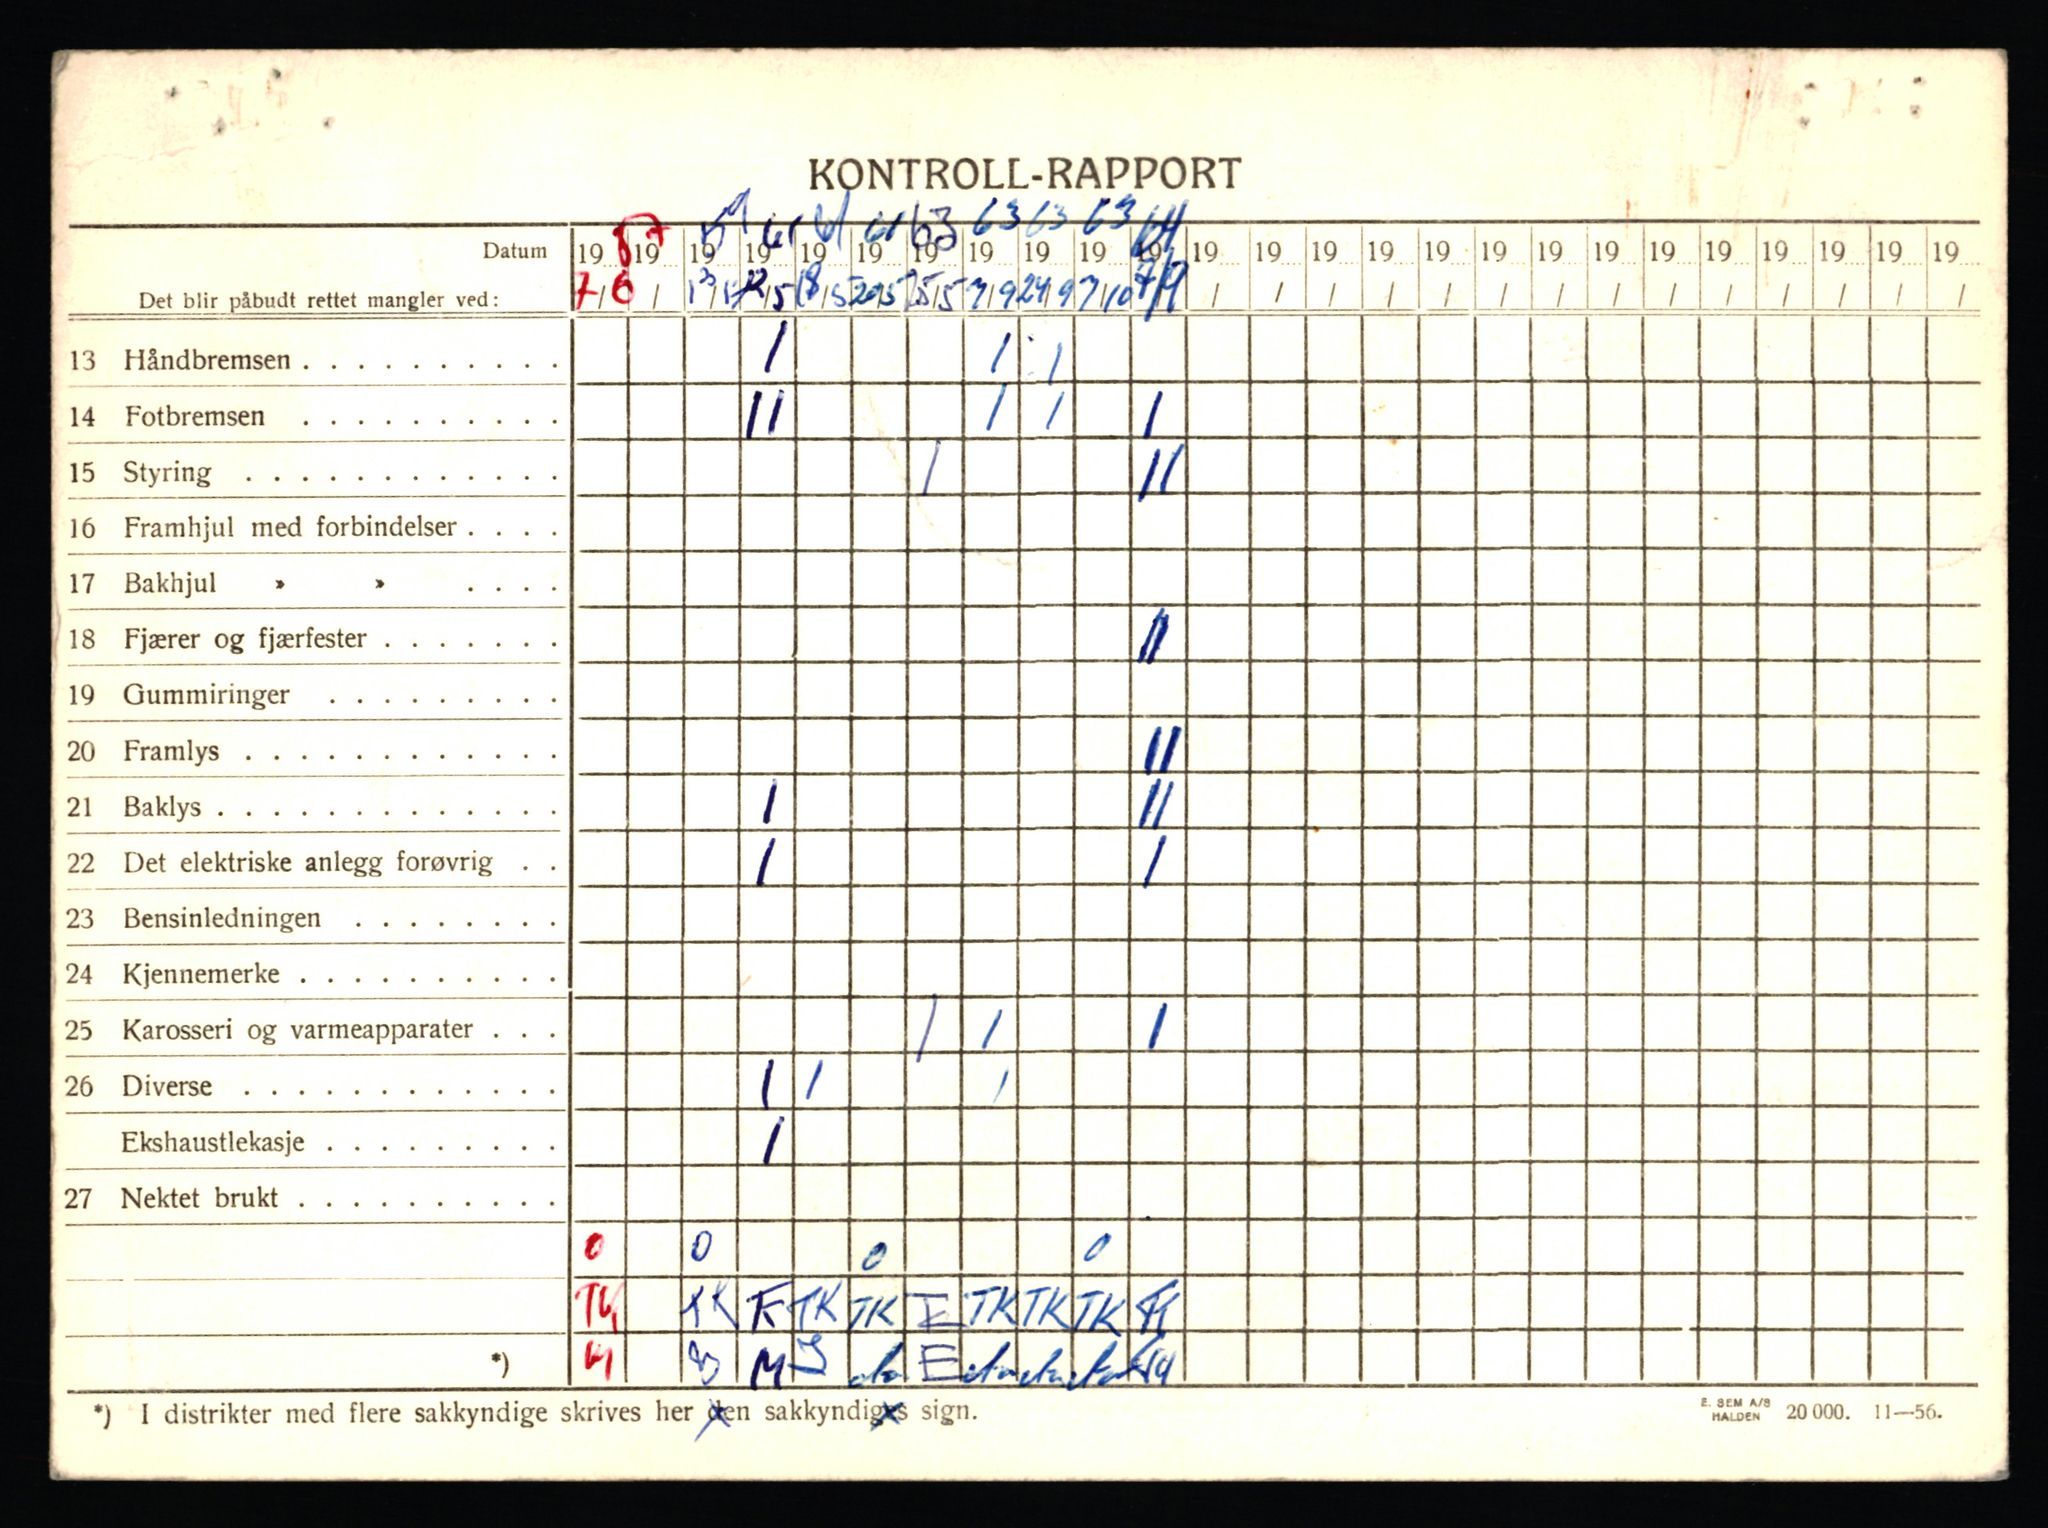 KONTROLL-RAPPORT
57 59 61 61 61 63 63 63 63 64
Datum 19 19 19 19 19 19 19 19 19 19 19 19 19 19 19 19 19 19 19 19 19 19 19 19 19
Det blir påbudt rettet mangler ved: 7/6 / 12/5 18/5 20/5 25/5 3/9 24/9 7/10 / / / / / / / / / / / / / /
13 Håndbremsen . . . . . . . . . . 1 1 1
14 Fotbremsen . . . . . . . . . . 11 1 1 1
15 Styring . . . . . . . . . . . . 1 11
16 Framhjul med forbindelser . . . .
17 Bakhjul » » . . . .
18 Fjærer og fjærfester . . . . . . . 11
19 Gummiringer . . . . . . . . .
20 Framlys . . . . . . . . . . . . 11
21 Baklys . . . . . . . . . . . . . 1 11
22 Det elektriske anlegg forøvrig . . 1 1
23 Bensinledningen . . . . . . . . .
24 Kjennemerke . . . . . . . . . .
25 Karosseri og varmeapparater . . . 1 1 1
26 Diverse . . . . . . . . . . . . 1 1 1
Ekshaustlekasje . . . . . . . . . 1
27 Nektet brukt . . . . . . . . . .
0 0 0 0
TK TK TK TK E TK TK TK
*) M E
*) I distrikter med flere sakkyndige skrives her den sakkyndiges sign.
E. SEM A/S HALDEN 20 000. 11—56.